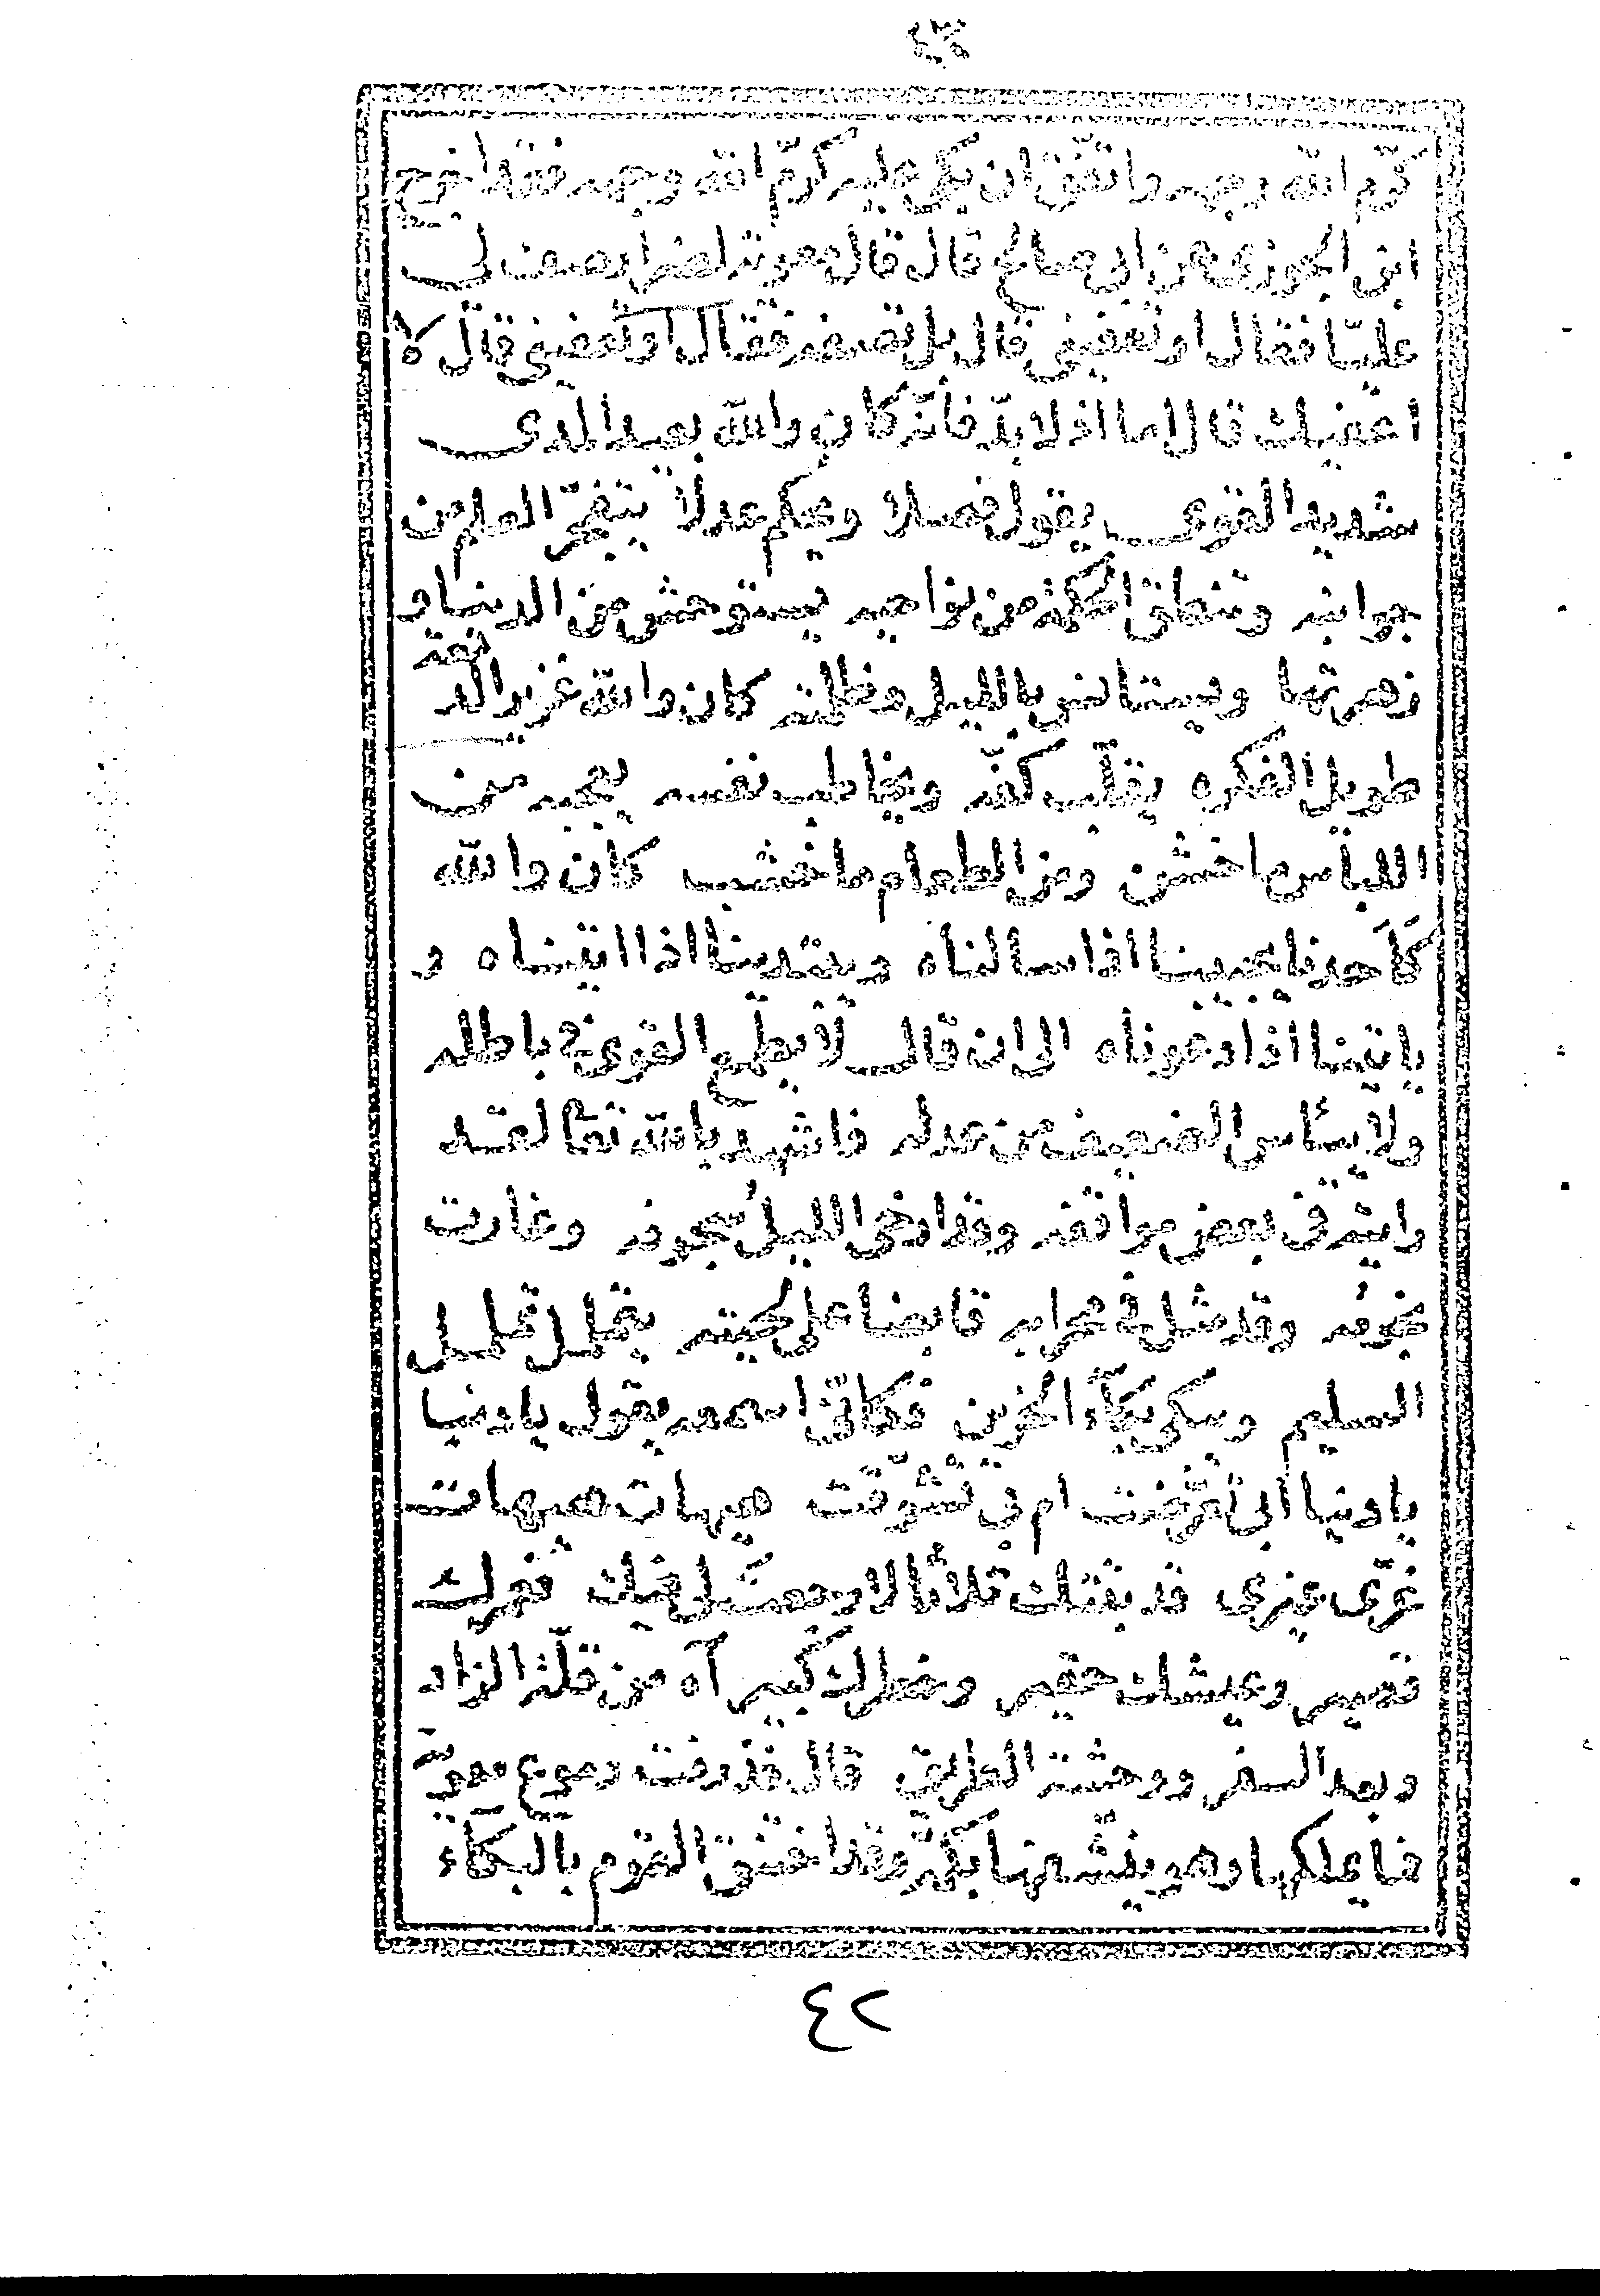 ٤٣
كرّم الله وجهه واتفق ان بكى عليه كرّم الله وجهه فقد اخرج
ابن الجوزى عن ابى صالح قال قال معوية لضرار صف لى
عليّا فقال او تعفينى قال بل تصفه فقال او تعفينى قال لا
اعفيك قال اما اذ لا بدّ فانّه كان والله بعيد المدى
شديد القوى يقول فصلا ويحكم عدلا يتفجّر العلم من
جوانبه وتنطق الحكمة من نواحيه يستوحش من الدنيا و
زهرتها ويستانس بالليل وظلمته كان والله غزير الد
معة
طويل الفكره يقلّب كفّه ويخاطب نفسه يعجبه من
اللباس ما خشن ومن الطعام ما خشب كان والله
كاحدنا يجيبنا اذا سالناه ويبتدينا اذا اتيناه و
ياتينا اذا دعوناه الى ان قال لا يطمع القوى فى باطله
ولا يياس الضعيف من عدله فاشهد بالله تعالى لقد
رايته فى بعض مواقفه وقد ارخى الليل سجوفه وغارت
نجومه وقد مثل فى محرابه قابضا على لحيته يتململ تململ
السليم ويبكى بكاء الحزين فكانّى اسمعه يقول يا دنيا
يا دنيا ابى تعرّضت ام بى تشوّقت هيهات هيهات
غرّى غيرى قد بتتك ثلاثا لا رجعت لى فيك فعمرك
قصير وعيشك حقير وخطرك كبير آه من قلّة الزاد
وبعد السفر ووحشة الطريق قال فذرفت دموع معوية
فما يملكها وهو ينشّفها بكمّه وقد اختنق القوم بالبكاء
٤٢